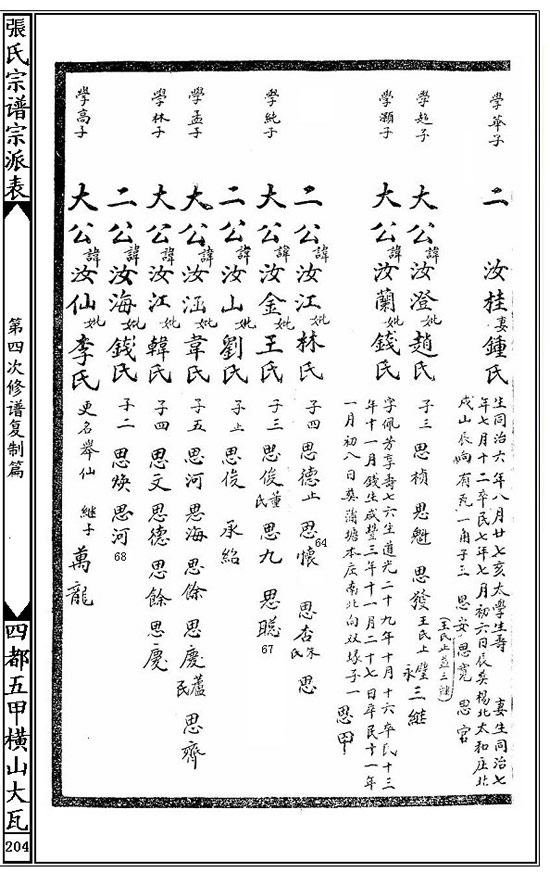 張氏宗谱宗派表
第四次修谱复制篇
四都五甲横山大瓦
204
學華子
二 汝桂妻鍾氏
生同治六年八月廿七亥太學生壽 妻生同治七
年七月十二卒民七年七月初六日辰葬楊北太和庄北
戍山辰向有瓦一角子三 思安 思寬 思官
學起子
大公諱汝澄妣趙氏 子三 思楨 思魁 思發
學灝子
大公諱汝蘭妣錢氏
字佩芳享壽七六生道光二十九年十月十六卒民十三
年十一月錢生咸豐三年十一月二十七日卒民十一年
一月初八日葬蒲塘本庄南北向双塚子一 思甲
二公諱汝江妣林氏 子四 思德止 思懷64 思杏朱氏 思
學純子
大公諱汝金妣王氏 子三 思俊董氏 思九 思聪67
二公諱汝山妣劉氏 子止 思俊 承紹
學孟子
大公諱汝涵妣韋氏 子五 思河 思海 思餘 思慶蘆氏 思齊
學林子
大公諱汝江妣韓氏 子四 思文 思德 思餘 思慶
二公諱汝海妣錢氏 子二 思煥 思河68
學高子
大公諱汝仙妣李氏 更名舉仙 继子 萬龍